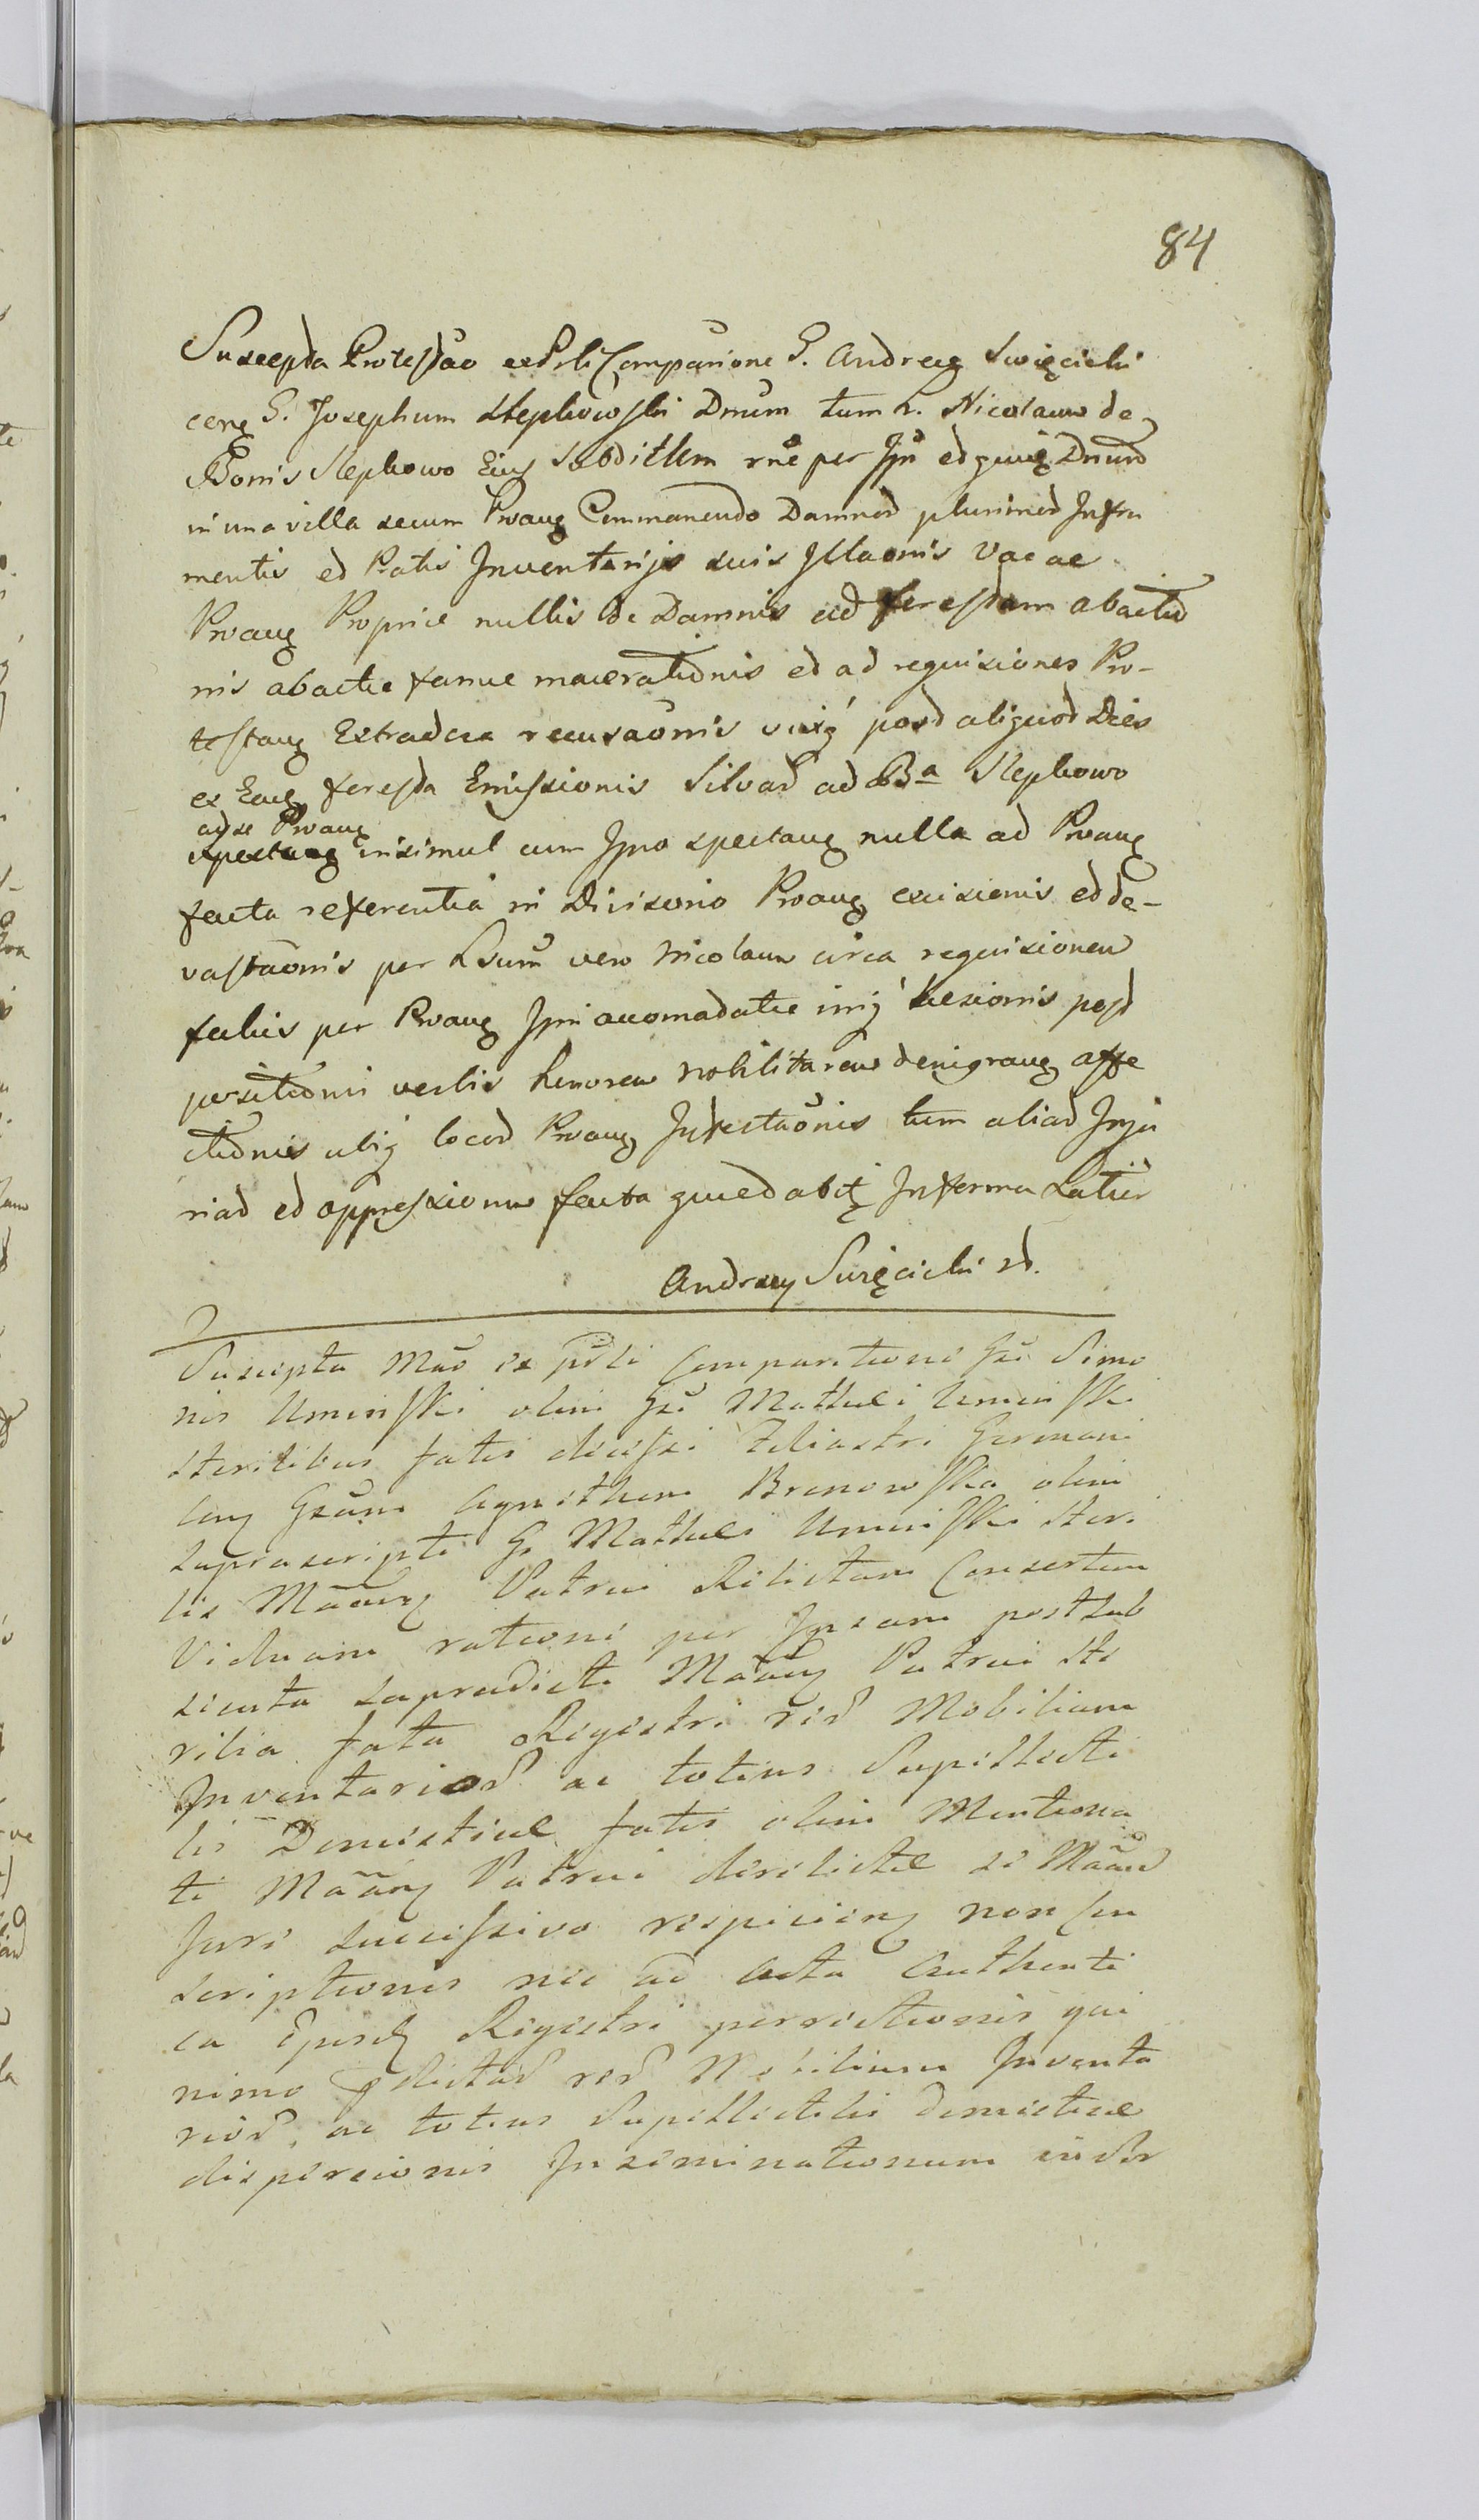 84
Suscepta Protestao ex Prli Comparione G. Andreae Swięcicki
cong G. Josephum Stępkowski Dnum tum L. Nicolaum de
Bonis Stępkowo Eius Subditum rne per Jpn et
in una villa secum Proang Commanendo Damnor plurimor in Fru
mentis et Pratis Inventarijs suis Illaonis Vacae
Proang Propriae nullis de Damnis ad forestam abactio
nis abactae fame macerationis et ad requisiones Pro-
testang Extradere recusaonis post aliquod Dies
ex Eadq foresta Emissionis Silvar ad Ba Stępkowo
ad se Proang
spectang insimul cum Jpso spectang nulla ad Proang
facta referentia in Divisorio Proang excisionis et de-
vastaonis per Lsum vero Nicolaum circa requisionem
falcis per Proang Jpsi accomadatae laesionis post
positionis verbis honorem nobilitarem denigrang affe
ctionis ubiq locor Proang Infestaonis tum aliar Inju
riar et oppressionum facta Informa Latior
Andrzey Swięcicki
Suscepta Mão ex prli Comparitione Gsi Simo
nis Uminski olim Gsi Mathaei Uminski
sterilibus fatis decessi Filiastri Germani
cong Gsãm Agnethem Bronowska olim
suprascripti G Mathaei Uminski steri
lis Mãang Patrui Relictam Consortem
Viduam ratione per Ipsam post sub
secuta supradicti Mãang Patrui ste
rilia fata Regestri rer Mobilium
Inventarior ac totius Supellecti
lis Domesticae fatis olim Mentiona
ti Mãang Patrui derelictae se Mãand
Jure successivo respicieng non con
scriptionis nec ad Acta Authenti
ca Ejusdq Regestri porrectionis qui
nimo Relictar rer Mobilium Inventa
rior, ac totius Supellectilis domesticae
dispersionis Inseminationum